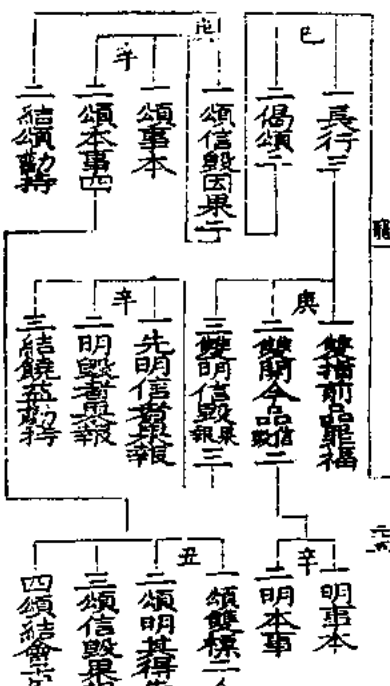 己
一長行三
二偈頌二
庚
一頌信毀因果二
二結頌勸持
辛
一頌事本
二頌本事四
庚
一雙指前品罪福
二雙開今品信毀二
三雙明信毀果報三
辛
一先明信者果報
二明毀者果報
三結勸持
辛
一明事本
二明本事
丑
一頌雙標二
二頌明其得失
三頌信毀果報
四頌結會古今